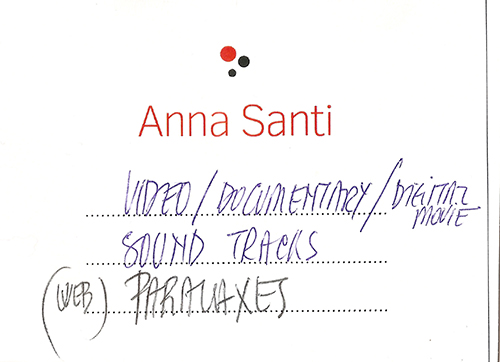 Anna Santi
VIDEO / DOCUMENTARY / DIGITAL
MOVIE
SOUND TRACKS
(WEB) PARALLAXES